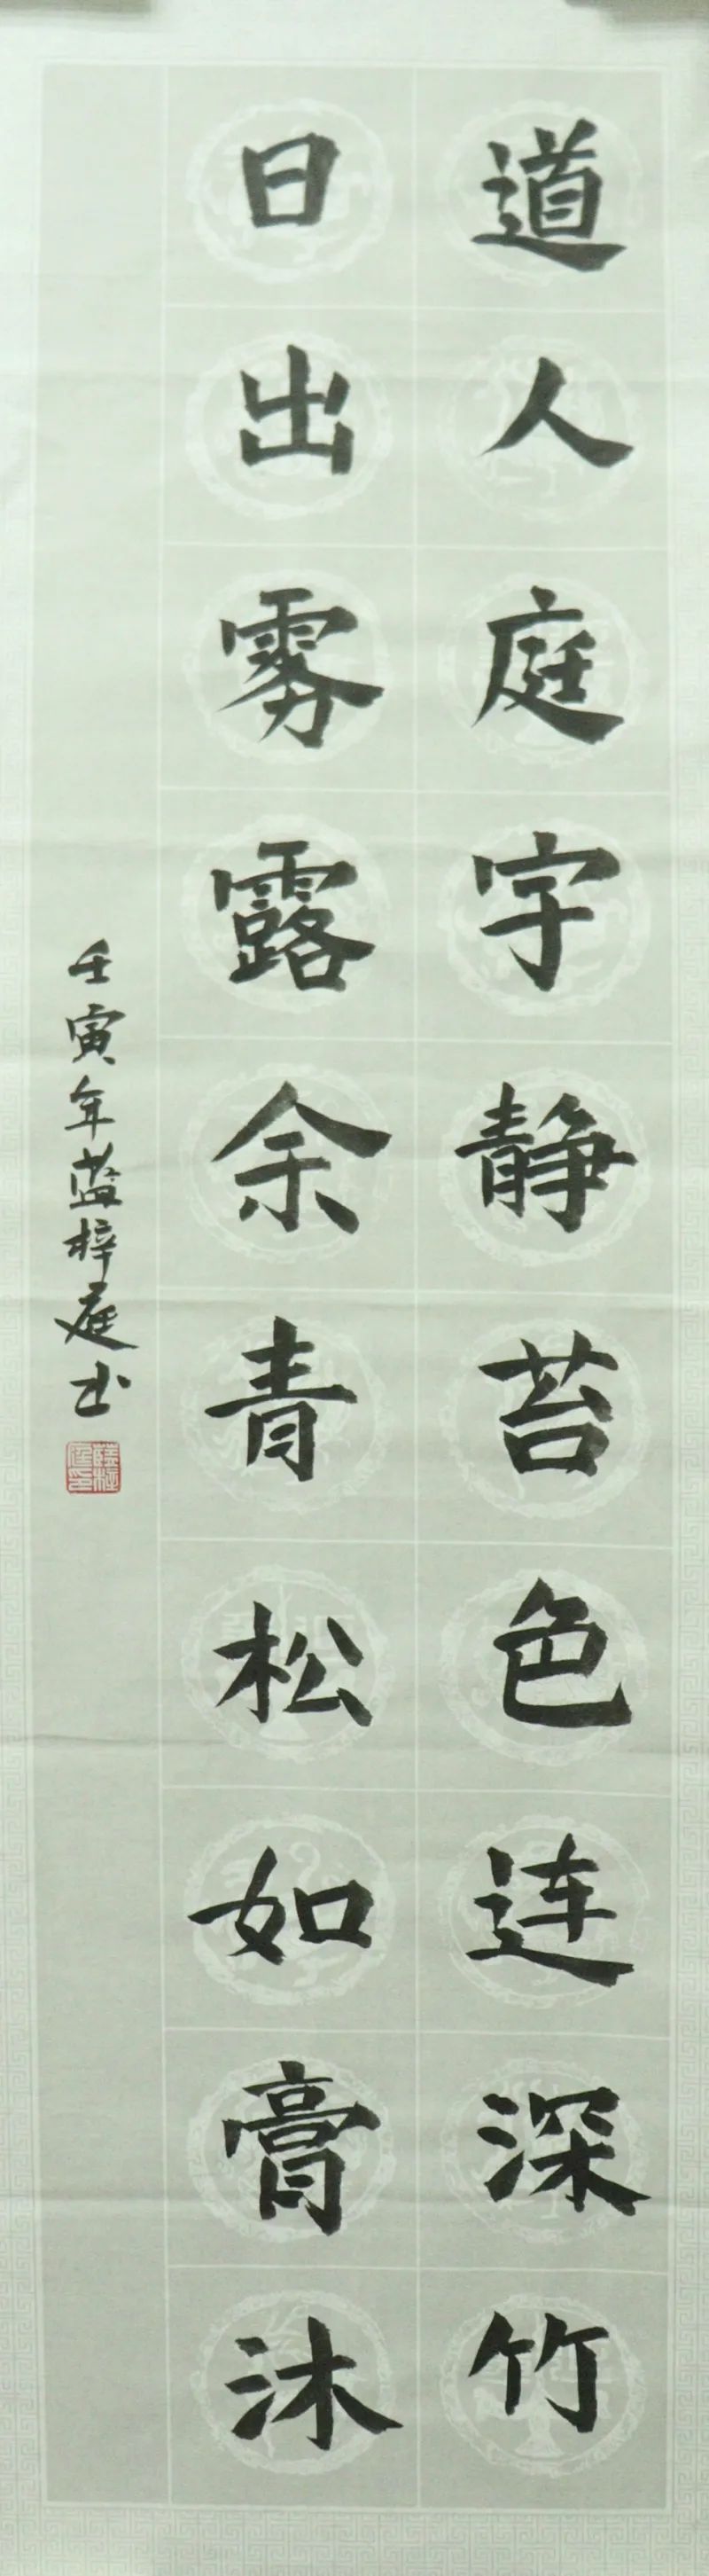 道人庭宇静苔色连深竹
日出雾露余青松如膏沐
壬寅年蓝梓庭书